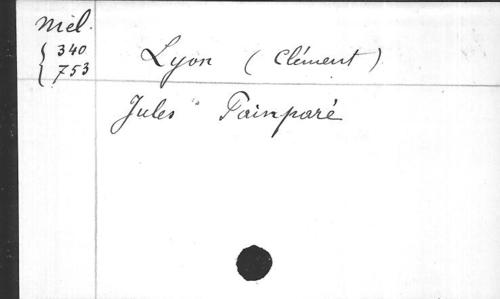 Mél.
340
753
Lyon (Clément)
Jules Painparé